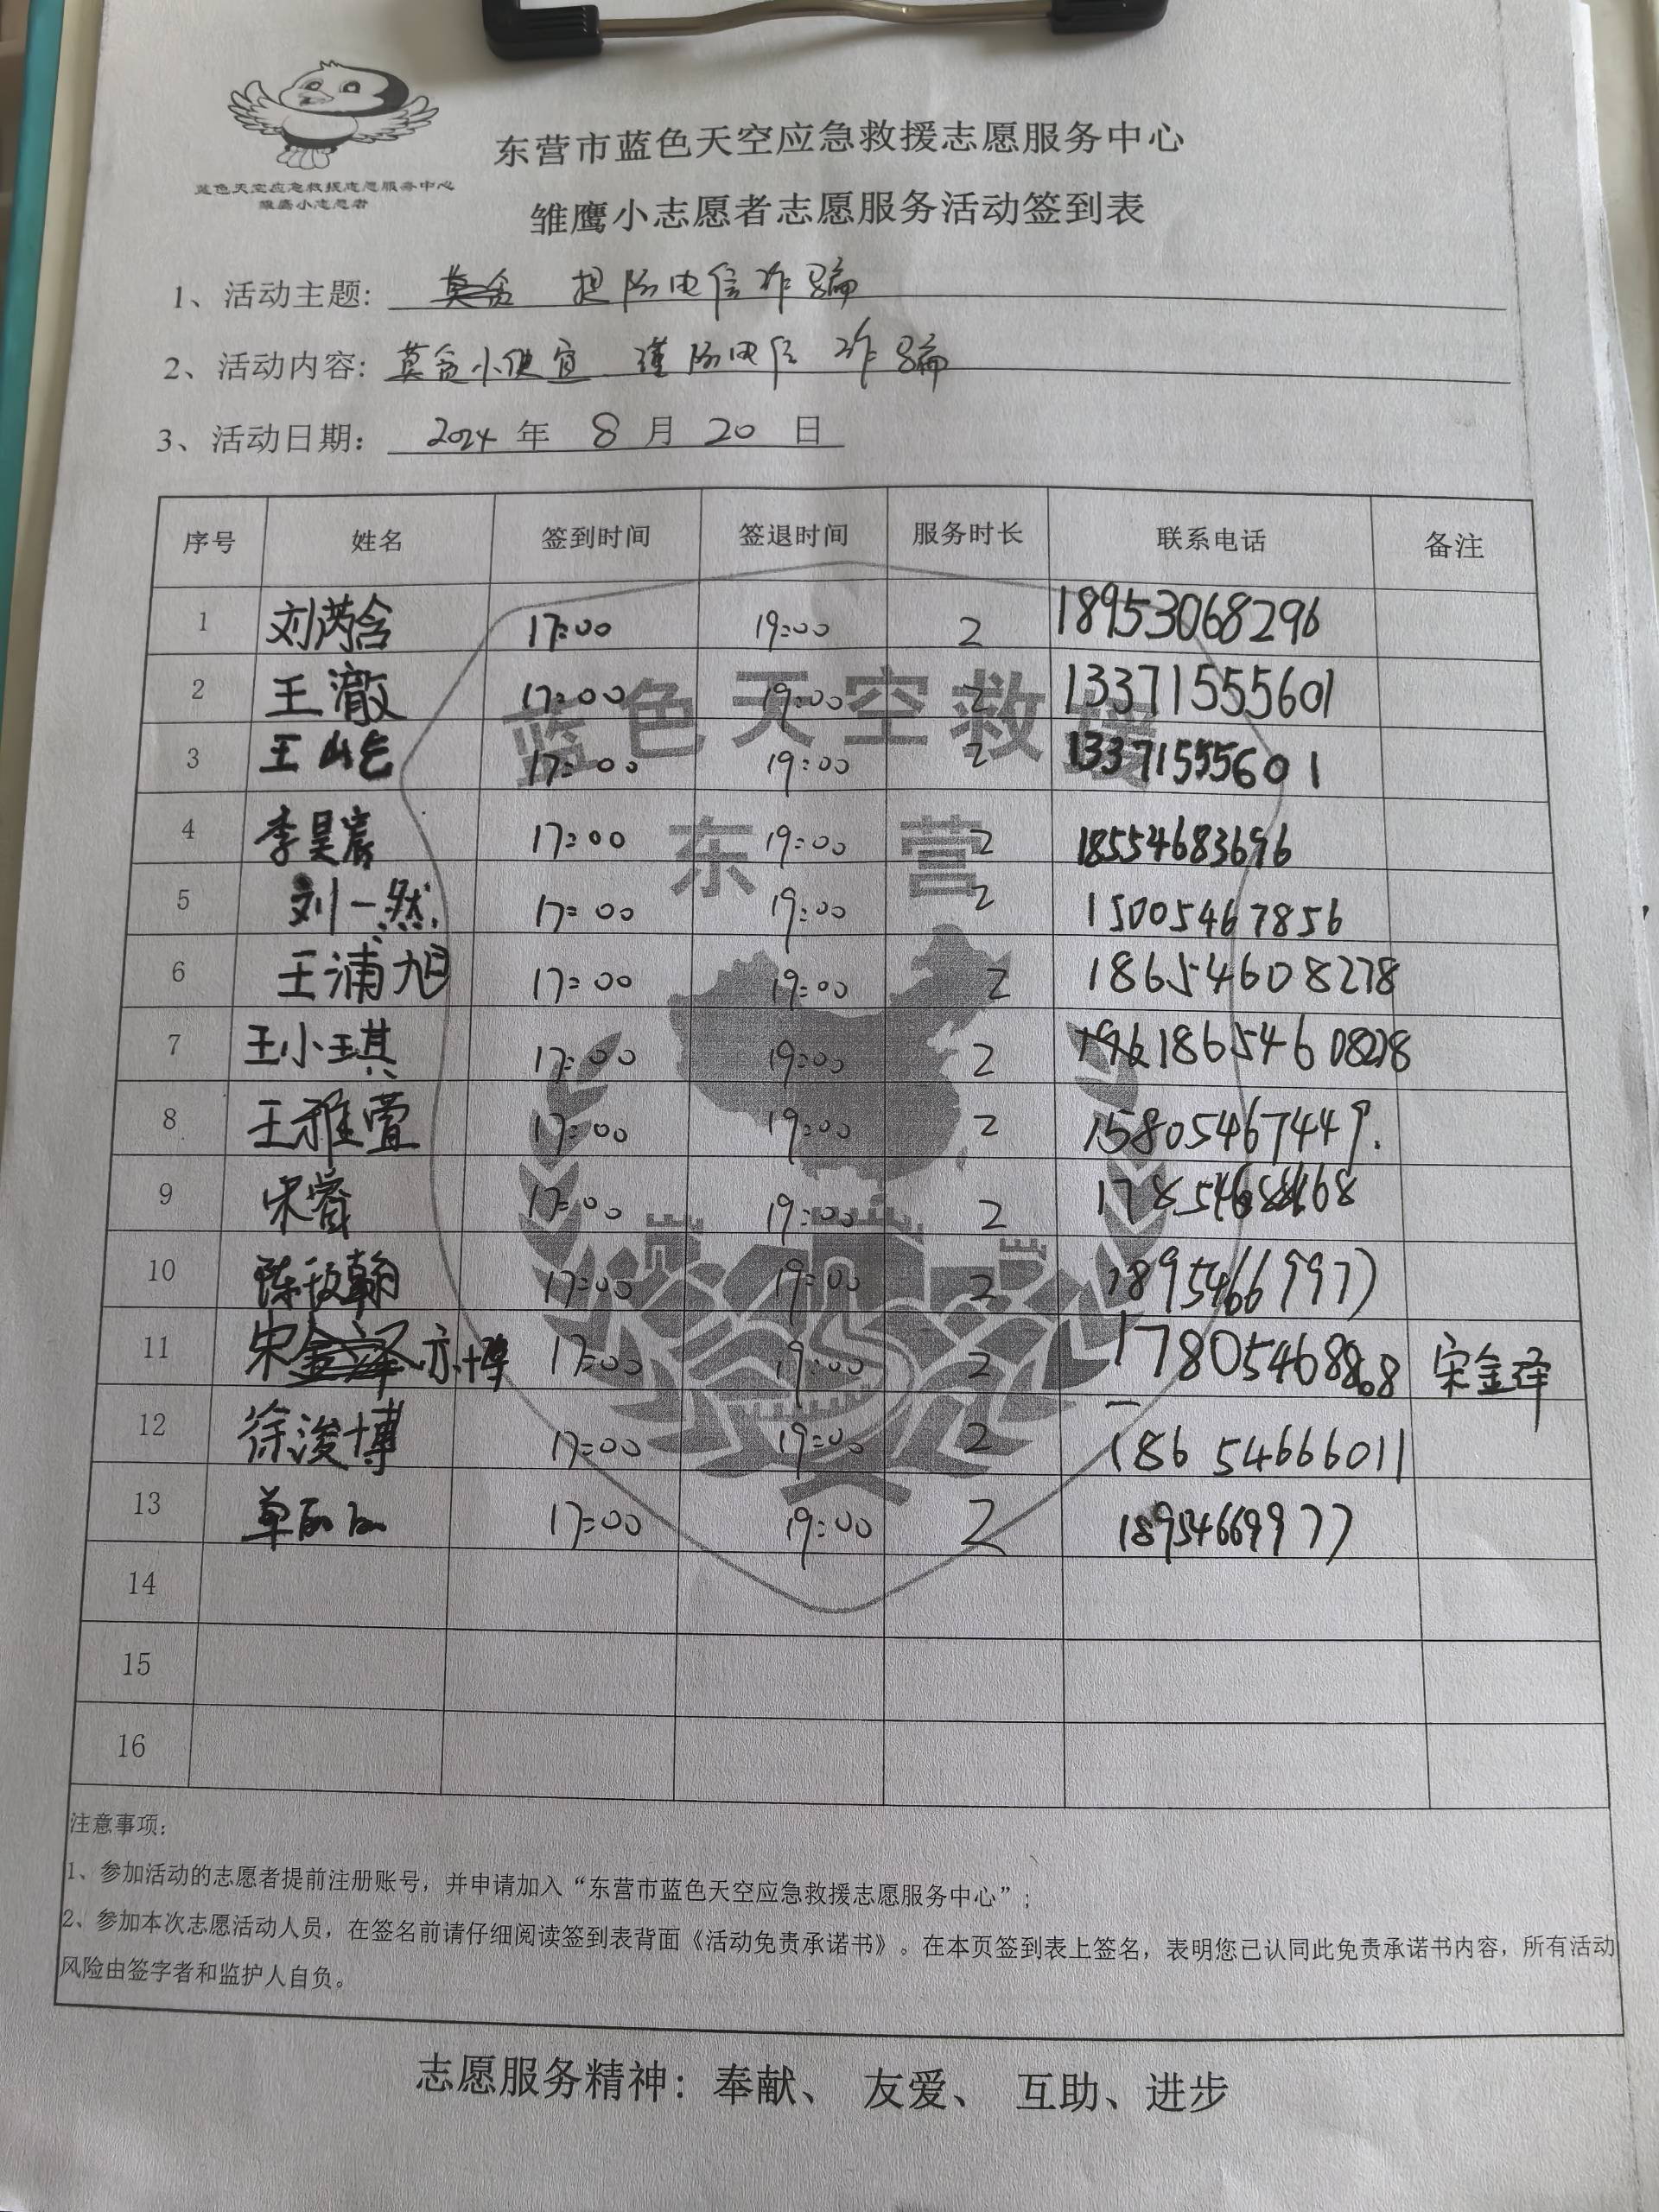 蓝色天空应急救援志愿服务中心
雏鹰小志愿者
东营市蓝色天空应急救援志愿服务中心
雏鹰小志愿者志愿服务活动签到表
1、活动主题: 提防电信诈骗
2、活动内容: 莫贪小便宜 谨防电信诈骗
3、活动日期: 2024 年 8 月 20 日
序号 姓名 签到时间 签退时间 服务时长 联系电话 备注
1 刘芮含 17:00 19:00 2 18953068296
2 王澈 17:00 19:00 2 13371555601
3 王 17:00 19:00 2 13371555601
4 李昊宸 17:00 19:00 2 18554683696
5 刘一然 17:00 19:00 2 15005467856
6 王浦旭 17:00 19:00 2 18654608278
7 王小琪 17:00 19:00 2 18654608278
8 王雅萱 17:00 19:00 2 15805467449
9 宋睿 17:00 19:00 2
10 17:00 19:00 2 18954669977
11 17:00 19:00 2 宋金泽
12 徐浚博 17:00 19:00 2 18654666011
13 17:00 19:00 2 18954669977
14
15
16
蓝色天空救援
东营
注意事项:
1、参加活动的志愿者提前注册账号，并申请加入“东营市蓝色天空应急救援志愿服务中心”;
2、参加本次志愿活动人员，在签名前请仔细阅读签到表背面《活动免责承诺书》。在本页签到表上签名，表明您已认同此免责承诺书内容，所有活动
风险由签字者和监护人自负。
志愿服务精神: 奉献、 友爱、 互助、进步